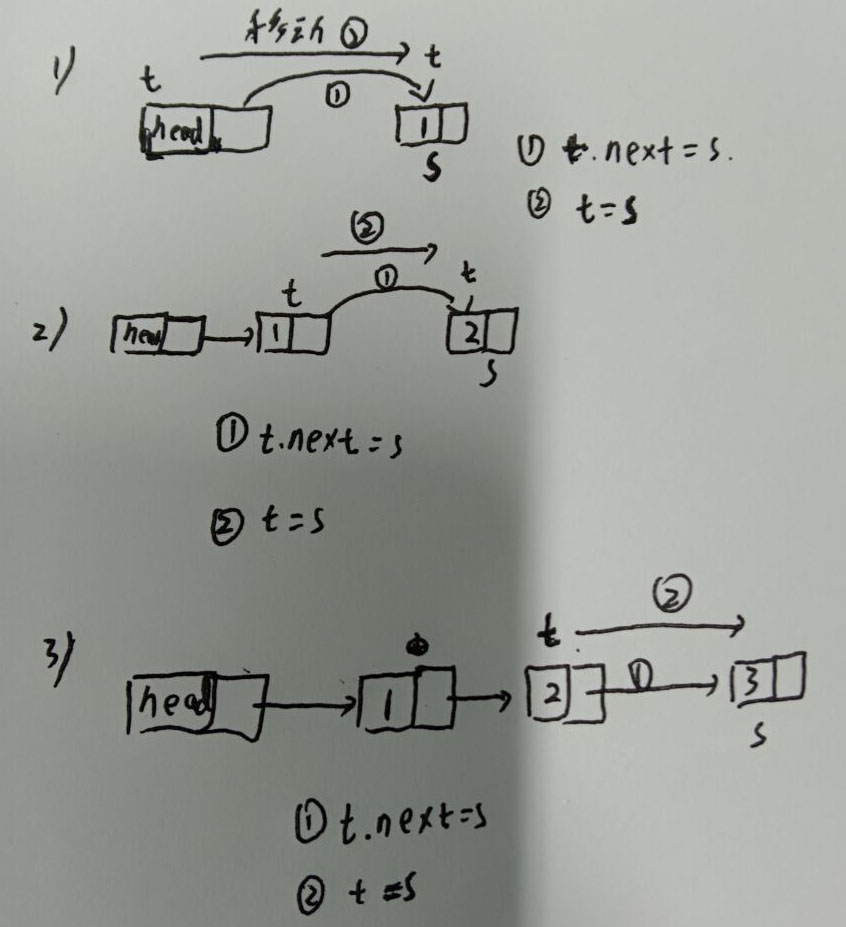 1)
移动 ②
t
t
①
head
1
S
① t.next=s.
② t=s
②
t
①
t
2)
hea
1
2
S
① t.next=s
② t=s
3)
②
t
head
1
2
①
3
S
① t.next=s
② t=s